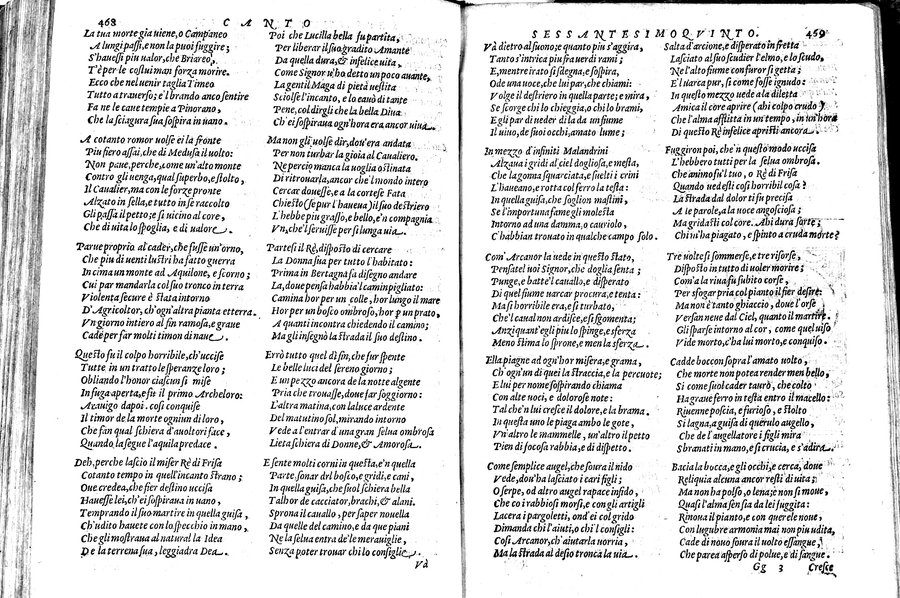 468 CANTO
La tua morte gia viene, o Campaneo
A lungi passi, e non la puoi fuggire;
S'hauessi piu ualor, che Briareo,
T'è per le costui man forza morire.
Ecco che nel uenir taglia Timeo
Tutto a trauerso; e'l brando anco sentire
Fa ne le caue tempie a Pinorano,
Che la sciagura sua sospira in uano.
A cotanto romor uolse ei la fronte
Piu fiero assai, che di Medusa il uolto:
Non paue, perche, come un'alto monte
Contro gli uenga, qual superbo, e stolto,
Il Caualier, ma con le forze pronte
Alzato in sella, e tutto in se raccolto
Gli passa il petto; e si uicino al core,
Che di uita lo spoglia, e di ualore.
Parue proprio al cader, che fusse un'orno,
Che piu di uenti lustri ha fatto guerra
In cima un monte ad Aquilone, e scorno;
Cui par mandarla col suo tronco in terra
Violenta secure è stata intorno
D'Agricoltor, ch'ogn'altra pianta etterra.
Vn giorno intiero al fin ramosa, e graue
Cade per far molti timon di naue.
Questo fu il colpo horribile, ch'uccise
Tutte in un tratto le speranze loro;
Obliando l'honor ciascun si mise
In fuga aperta, e fù il primo Archeloro:
Arauigo dapoi. cosi conquise
Il timor de la morte ogniun di loro,
Che fan qual schiera d'auoltori face,
Quando la segue l'aquila predace.
Deh, perche lascio il miser Rè di Frisa
Cotanto tempo in quell'incanto strano;
Oue credea, che fier destino uccisa
Hauesse lei, ch'ei sospiraua in uano,
Temprando il suo martire in quella guisa,
Ch'udito hauete con lo specchio in mano,
Che gli mostraua al natural la Idea
De la terrena sua, leggiadra Dea.
Poi che Lucilla bella fu partita,
Per liberar il suo gradito Amante
Da quella dura, & infelice uita,
Come Signor u'ho detto un poco auante,
La gentil Maga di pietà uestita
Sciolse l'incanto, e lo cauò di tante
Pene, col dirgli che la bella Diua
Ch'ei sospiraua ogn'hora era ancor uiua.
Ma non gli uolse dir, dou'era andata
Per non turbar la gioia al Caualiero.
Ne perciò manca la uoglia ostinata
Di ritrouarla, ancor che'l mondo intero
Cercar douesse, e a la cortese Fata
Chiesto (se pur l'haueua) il suo destriero
L'hebbe piu grasso, e bello, e'n compagnia
Vn, che'l seruisse per si lunga uia.
Partesi il Rè, disposto di cercare
La Donna sua per tutto l'habitato:
Prima in Bertagna fà disegno andare
Là, doue pensa habbia'l camin pigliato:
Camina hor per un colle, hor lungo il mare
Hor per un bosco ombroso, hor p un prato,
A quanti incontra chiedendo il camino;
Ma gli insegnò la strada il suo destino.
Errò tutto quel dì fin, che fur spente
Le belle luci del sereno giorno;
E un pezzo ancora de la notte algente
Pria che trouasse, doue far soggiorno:
L'altra matina, con la luce ardente
Del matutino sol, mirando intorno
Vede a l'entrar d'una gran selua ombrosa
Lieta schiera di Donne, & Amorosa.
E sente molti corni in questa, e'n quella
Parte sonar del bosco, e gridi, e cani,
In quella guisa, che suol schiera bella
Talhor de cacciator, brachi, & alani.
Sprona il cauallo, per saper nouella
Da quelle del camino, e da que piani
Ne la selua entra de le merauiglie,
Senza poter trouar chi lo consiglie.
Và
SESSANTESIMOQVINTO. 469
Và dietro al suono; e quanto piu s'aggira,
Tanto s'intrica piu fra uerdi rami;
E, mentre irato si sdegna, e sospira,
Ode una voce, che lui par, che chiami:
Volge il destriero in quella parte; e mira,
Se scorge chi lo chieggia, o chi lo brami,
E gli par di ueder di là da un fiume
Il uiuo, de suoi occhi, amato lume;
In mezzo d'infiniti Malandrini
Alzaua i gridi al ciel dogliosa, e mesta,
Che la gonna squarciata, e suelti i crini
L'haueano, e rotta col ferro la testa:
In quella guisa, che soglion mastini,
Se l'importuna fame gli molesta
Intorno ad una damma, o cauriolo,
C'habbian trouato in qualche campo solo.
Com'Arcanor la uede in questo stato,
Pensatel uoi Signor, che doglia senta;
Punge, e batte'l cauallo, e disperato
Di quel fiume uarcar procura, e tenta:
Ma si horribile era, e si turbato,
Che'l caual non ardisce, e si sgomenta;
Anzi quant'egli piu lo spinge, e sferza
Meno stima lo sprone, e men la sferza.
Ella piagne ad ogn'hor misera, e grama,
Ch'ogn'un di quei la straccia, e la percuote;
E lui per nome sospirando chiama
Con alte uoci, e dolorose note:
Tal che'n lui cresce il dolore, e la brama.
In questa uno le piaga ambo le gote,
Vn'altro le mammelle, un'altro il petto
Pien di focosa rabbia, e di dispetto.
Come semplice augel, che soura il nido
Vede, dou'ha lasciato i cari figli;
O serpe, od altro augel rapace infido,
Che co i rabbiosi morsi, e con gli artigli
Lacera i pargoletti, ond'ei col grido
Dimanda chi l'aiuti, o chi'l consigli:
Cosi Arcanor, ch'aiutarla uorria,
Ma la strada al desio tronca la uia.
Salta d'arcione, e disperato in fretta
Lasciato al suo scudier l'elmo, e lo scudo,
Ne l'alto fiume con furor si getta;
E'l uarca pur, sì come fosse ignudo:
In questo mezzo uede a la diletta
Amica il core aprire (ahi colpo crudo)
Che l'alma afflitta in un tempo, in un'hora
Di questo Rè infelice apristi ancora.
Fuggiron poi, che'n questo modo uccisa
L'hebbero tutti per la selua ombrosa.
Che animo fu'l tuo, o Rè di Frisa
Quando uedesti cosi horribil cosa?
La strada dal dolor ti fu precisa
A le parole, a la uoce angosciosa;
Ma gridasti col core. Ahi dura sorte;
Chi m'ha piagato, e spinto a cruda morte?
Tre volte si sommerse, e tre risorse,
Disposto in tutto di uoler morire;
Com'a la riua fu subito corse,
Per sfogar pria col pianto il fier desire:
Ma non è tanto ghiaccio, doue l'orse
Versan neue dal Ciel, quanto il martire.
Gli sparse intorno al cor, come quel uiso
Vide morto, c'ha lui morto, e conquiso.
Cadde boccon sopra l'amato uolto,
Che morte non potea render men bello,
Si come suol cader tauro, ch'è colto
Ha graue ferro in testa entro il macello:
Riuenne poscia, e furioso, e stolto
Si lagna, a guisa di querulo augello,
Che de l'augellatore i figli mira
Sbranati in mano, e si crucia, e s'adira.
Bacia la bocca, e gli occhi, e cerca, doue
Reliquia alcuna ancor resti di uita;
Ma non ha polso, o lena; e non si moue,
Quasi l'alma sensa da lei fuggita:
Rinoua il pianto, e con querele noue,
Con lugubre armonia mai non piu udita,
Cade di nouo soura il uolto essangue,
Che parea asperso di polue, e di sangue.
Gg 3 Cresce